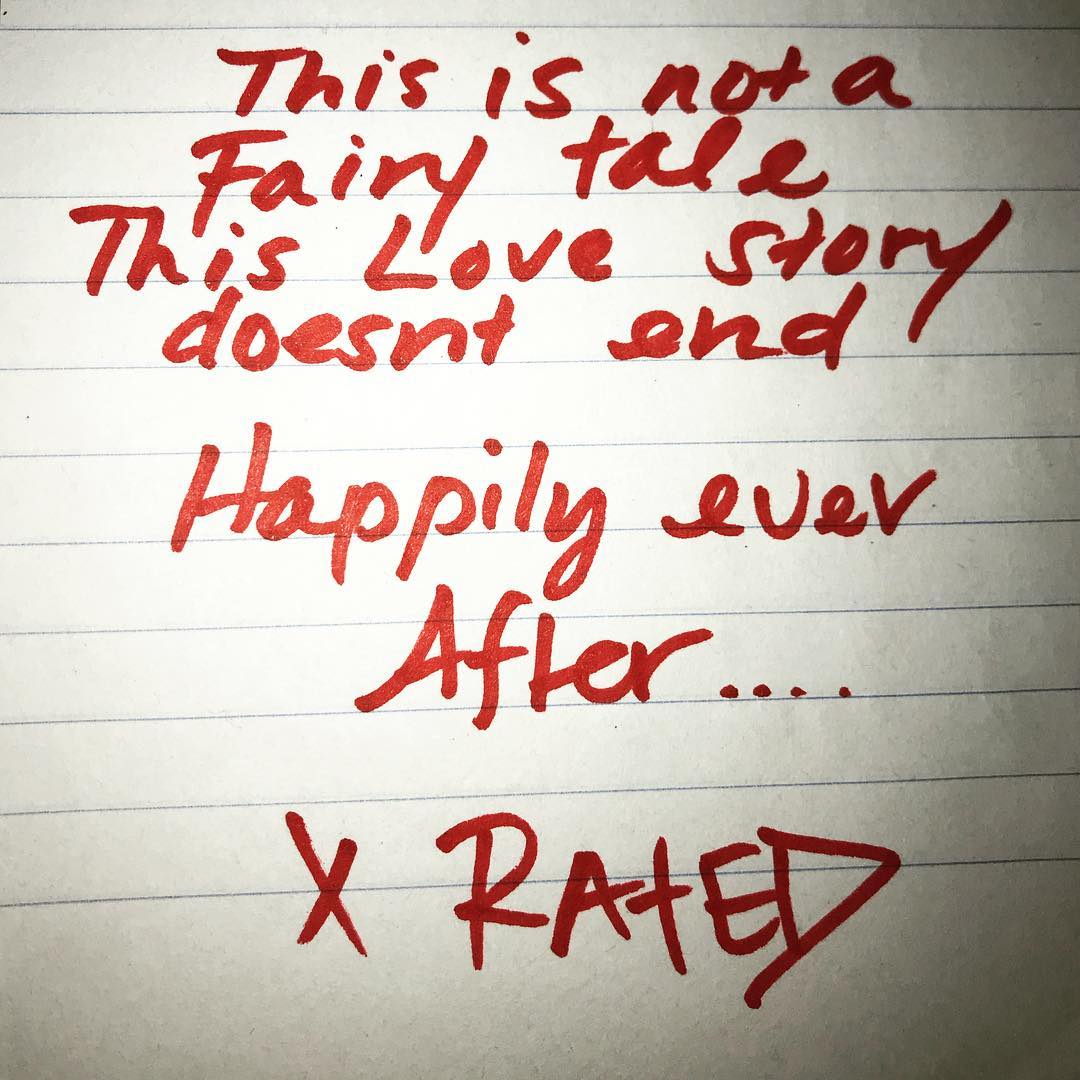 This is not a
Fairy tale
This Love story
doesnt end
Happily ever
After....
X RAtED